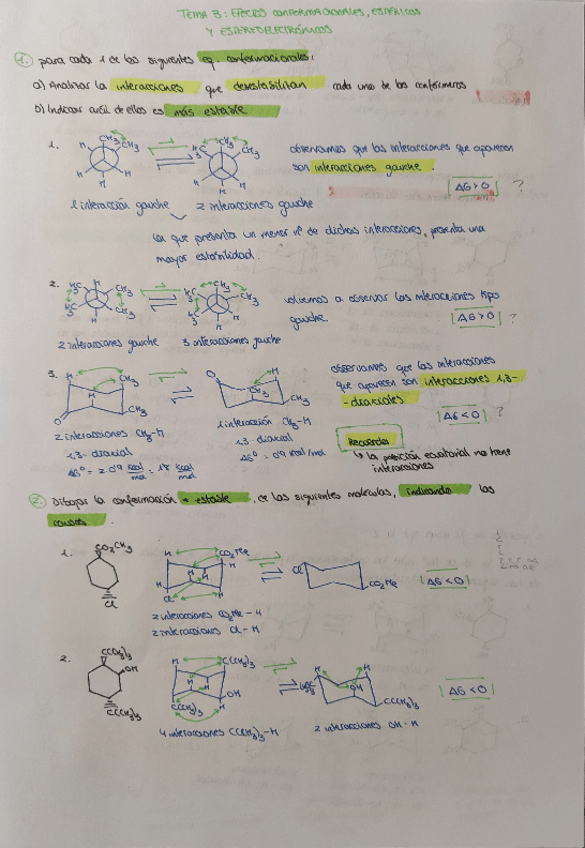 TEMA 3: EFECTOS CONFORMACIONALES, ESTÉRICOS
Y ESTEREOELECTRÓNICOS
1. para cada 1 de los siguientes eq. conformacionales:
a) Analizar la interacciones que desestabilizan cada uno de los confórmeros
b) Indicar cuál de ellos es más estable
1.
H CH3 CH3 H H H
H3C CH3 CH3 H H H
observamos que las interacciones que aparecen
son interacciones gauche.
ΔG>0 ?
1 interacción gauche
2 interacciones gauche
La que presenta un menor nº de dichas interacciones, presenta una
mayor estabilidad.
2.
H3C H CH3 H3C CH3 H
H3C CH3 CH3 H3C H H
volvemos a observar las interacciones tipo
gauche.
ΔG>0 ?
2 interacciones gauche
3 interacciones gauche
3.
H CH3 H CH3 O
O CH3 H CH3
observamos que las interacciones
que aparecen son interacciones 1,3-
-diaxiales
ΔG<0 ?
2 interacciones CH3-H
1,3-diaxial
ΔG° = 2·0'9 kcal/mol = 1'8 kcal/mol
1 interacción CH3-H
1,3-diaxial
ΔG° = 0'9 kcal/mol
Recuerda
↳ la posición ecuatorial no tiene
interacciones
2. Dibujar la conformación + estable, de las siguientes moléculas, indicando las
causas.
1.
CO2CH3
Cl
H CO2Me H H H Cl H
Cl CO2Me
ΔG<0
2 interacciones CO2Me-H
2 interacciones Cl-H
2.
C(CH3)3
OH
C(CH3)3
H C(CH3)3 H H OH C(CH3)3 H
H H OH C(CH3)3
ΔG<0
4 interacciones C(CH3)3-H
2 interacciones OH-H